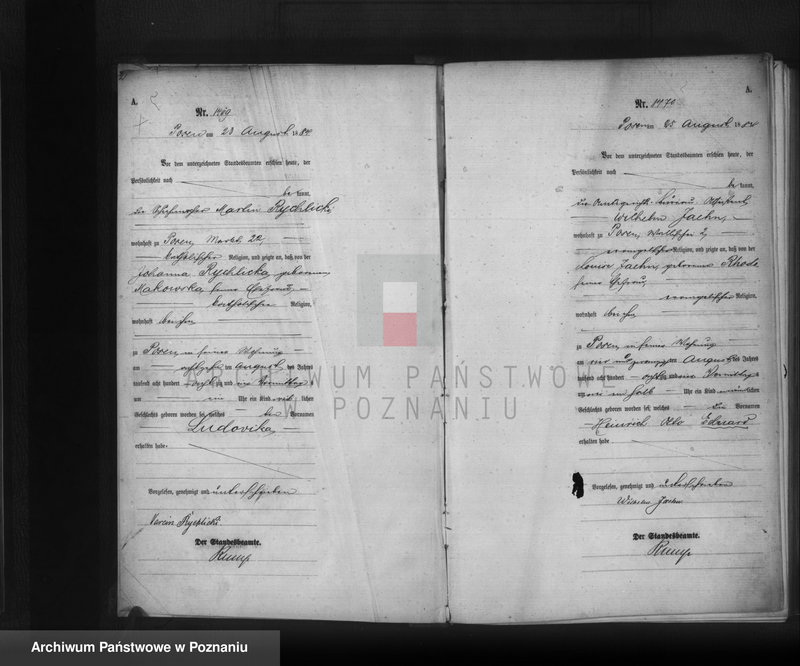 A.
Nr. 1469
Posen am 23 August 1884
Vor dem unterzeichneten Standesbeamten erschien heute, der
Persönlichkeit nach
be kannt,
der Schuhmacher Martin Rychlicki
wohnhaft zu Posen, Markt 22,
katholischer Religion, und zeigte an, daß von der
Johanna Rychlicka geborenen
Makowska seiner Ehefrau,
katholischer Religion,
wohnhaft bei ihm
zu Posen, in seiner Wohnung
am des Jahres
tausend acht hundert achtzig und vier Vormittags
um Uhr ein Kind weib lichen
Geschlechts geboren worden sei, welches den Vornamen
Ludovika
erhalten habe
Vorgelesen, genehmigt und unterschrieben
Rychlicki
Der Standesbeamte.
A.
Nr. 1470
Posen am 25 August 1884
Vor dem unterzeichneten Standesbeamten erschien heute, der
Persönlichkeit nach
be kannt,
Wilhelm Jaehn,
wohnhaft zu Posen,
evangelischer Religion, und zeigte an, daß von der
Louise Jaehn, geborenen Rhode
seiner Ehefrau,
evangelischer Religion,
wohnhaft bei ihm
zu Posen in seiner Wohnung
am vier und zwanzigsten August des Jahres
tausend acht hundert achtzig und vier Vormittags
um ein halb Uhr ein Kind männlichen
Geschlechts geboren worden sei, welches die Vornamen
Heinrich Otto Eduard
erhalten habe
Vorgelesen, genehmigt und unterschrieben
Wilhelm Jaehn
Der Standesbeamte.
ARCHIWUM PAŃSTWOWE
W POZNANIU
Archiwum Państwowe w Poznaniu